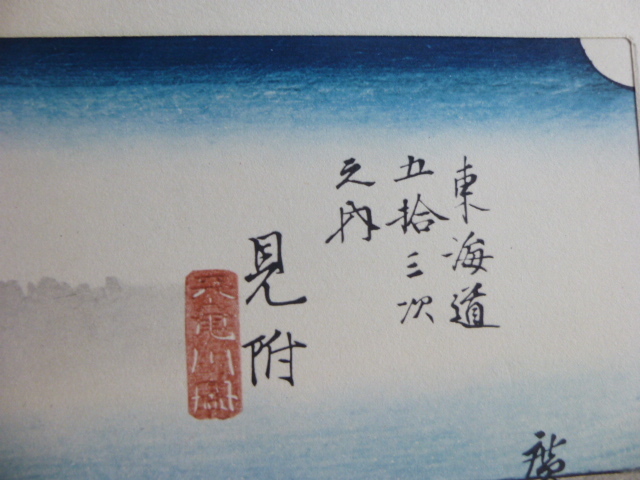 東海道
五拾三次
之内
見附
天竜川図
廣